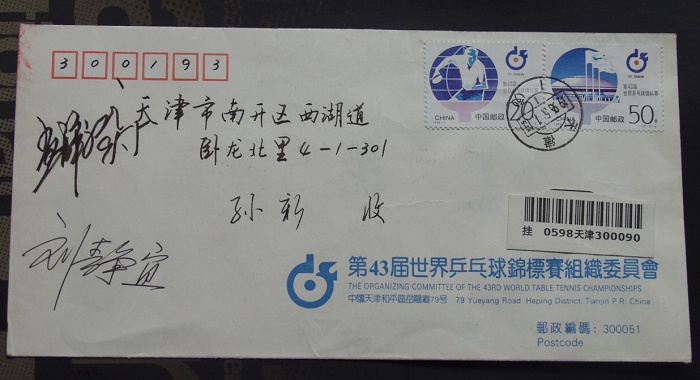 300193
天津市南开区西湖道
卧龙北里4-1-301
孙新 收
刘静宜
第43届
世界乒乓球锦标赛
CHINA 中国邮政
第43届
世界乒乓球锦标赛
中国邮政 50分
天津
挂 0598天津300090
第43届世界乒乓球錦標賽組織委員會
THE ORGANIZING COMMITTEE OF THE 43RD WORLD TABLE TENNIS CHAMPIONSHIPS
中國天津和平區岳陽道79号 79 Yueyang Road Heping District, Tianjin P.R. China
郵政編碼: 300051
Postcode